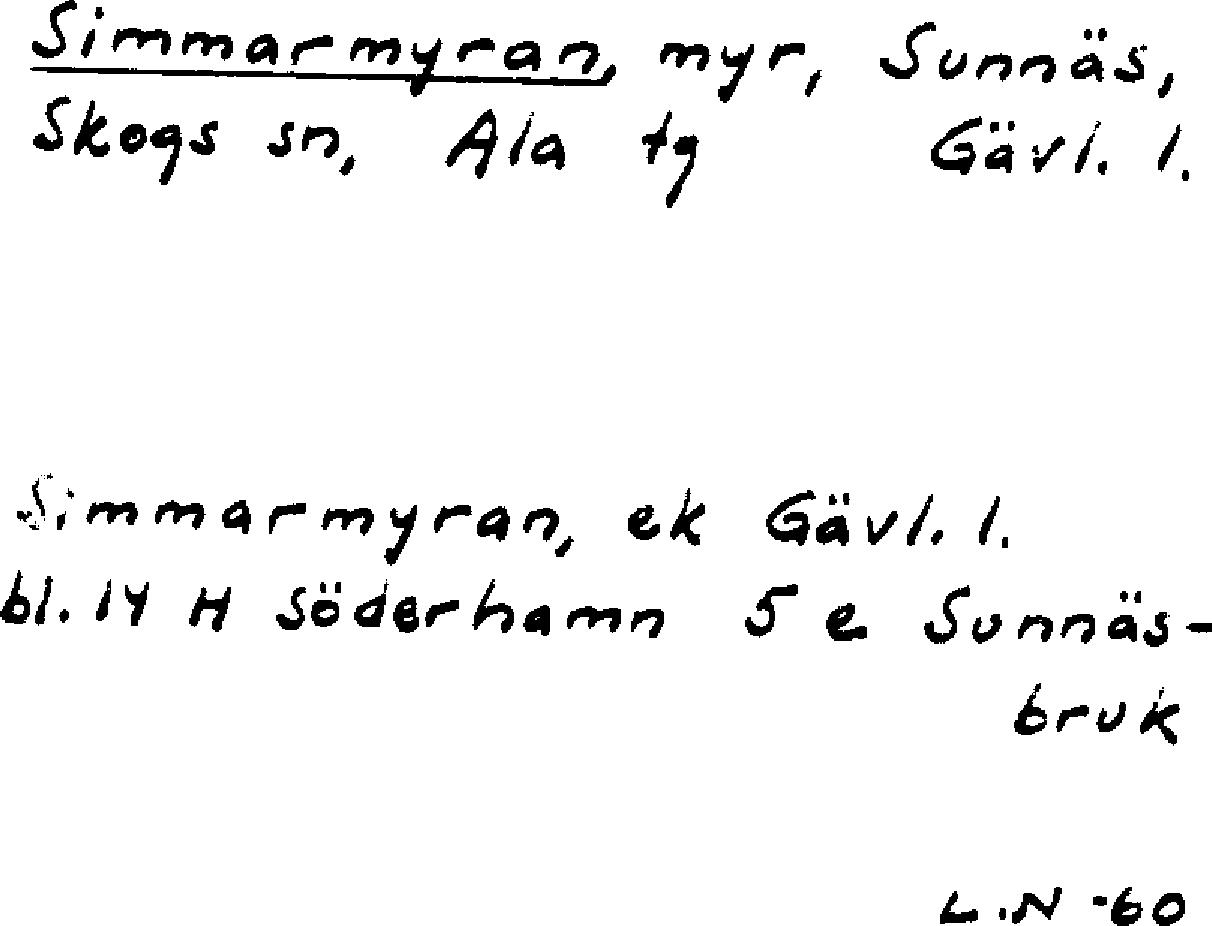 Simmarmyran, myr, Sunnäs,
Skogs sn, Ala tg Gävl. l.
Simmarmyran, ek Gävl. l.
bl. 14 H Söderhamn 5 e Sunnäs-
bruk
L.N -60